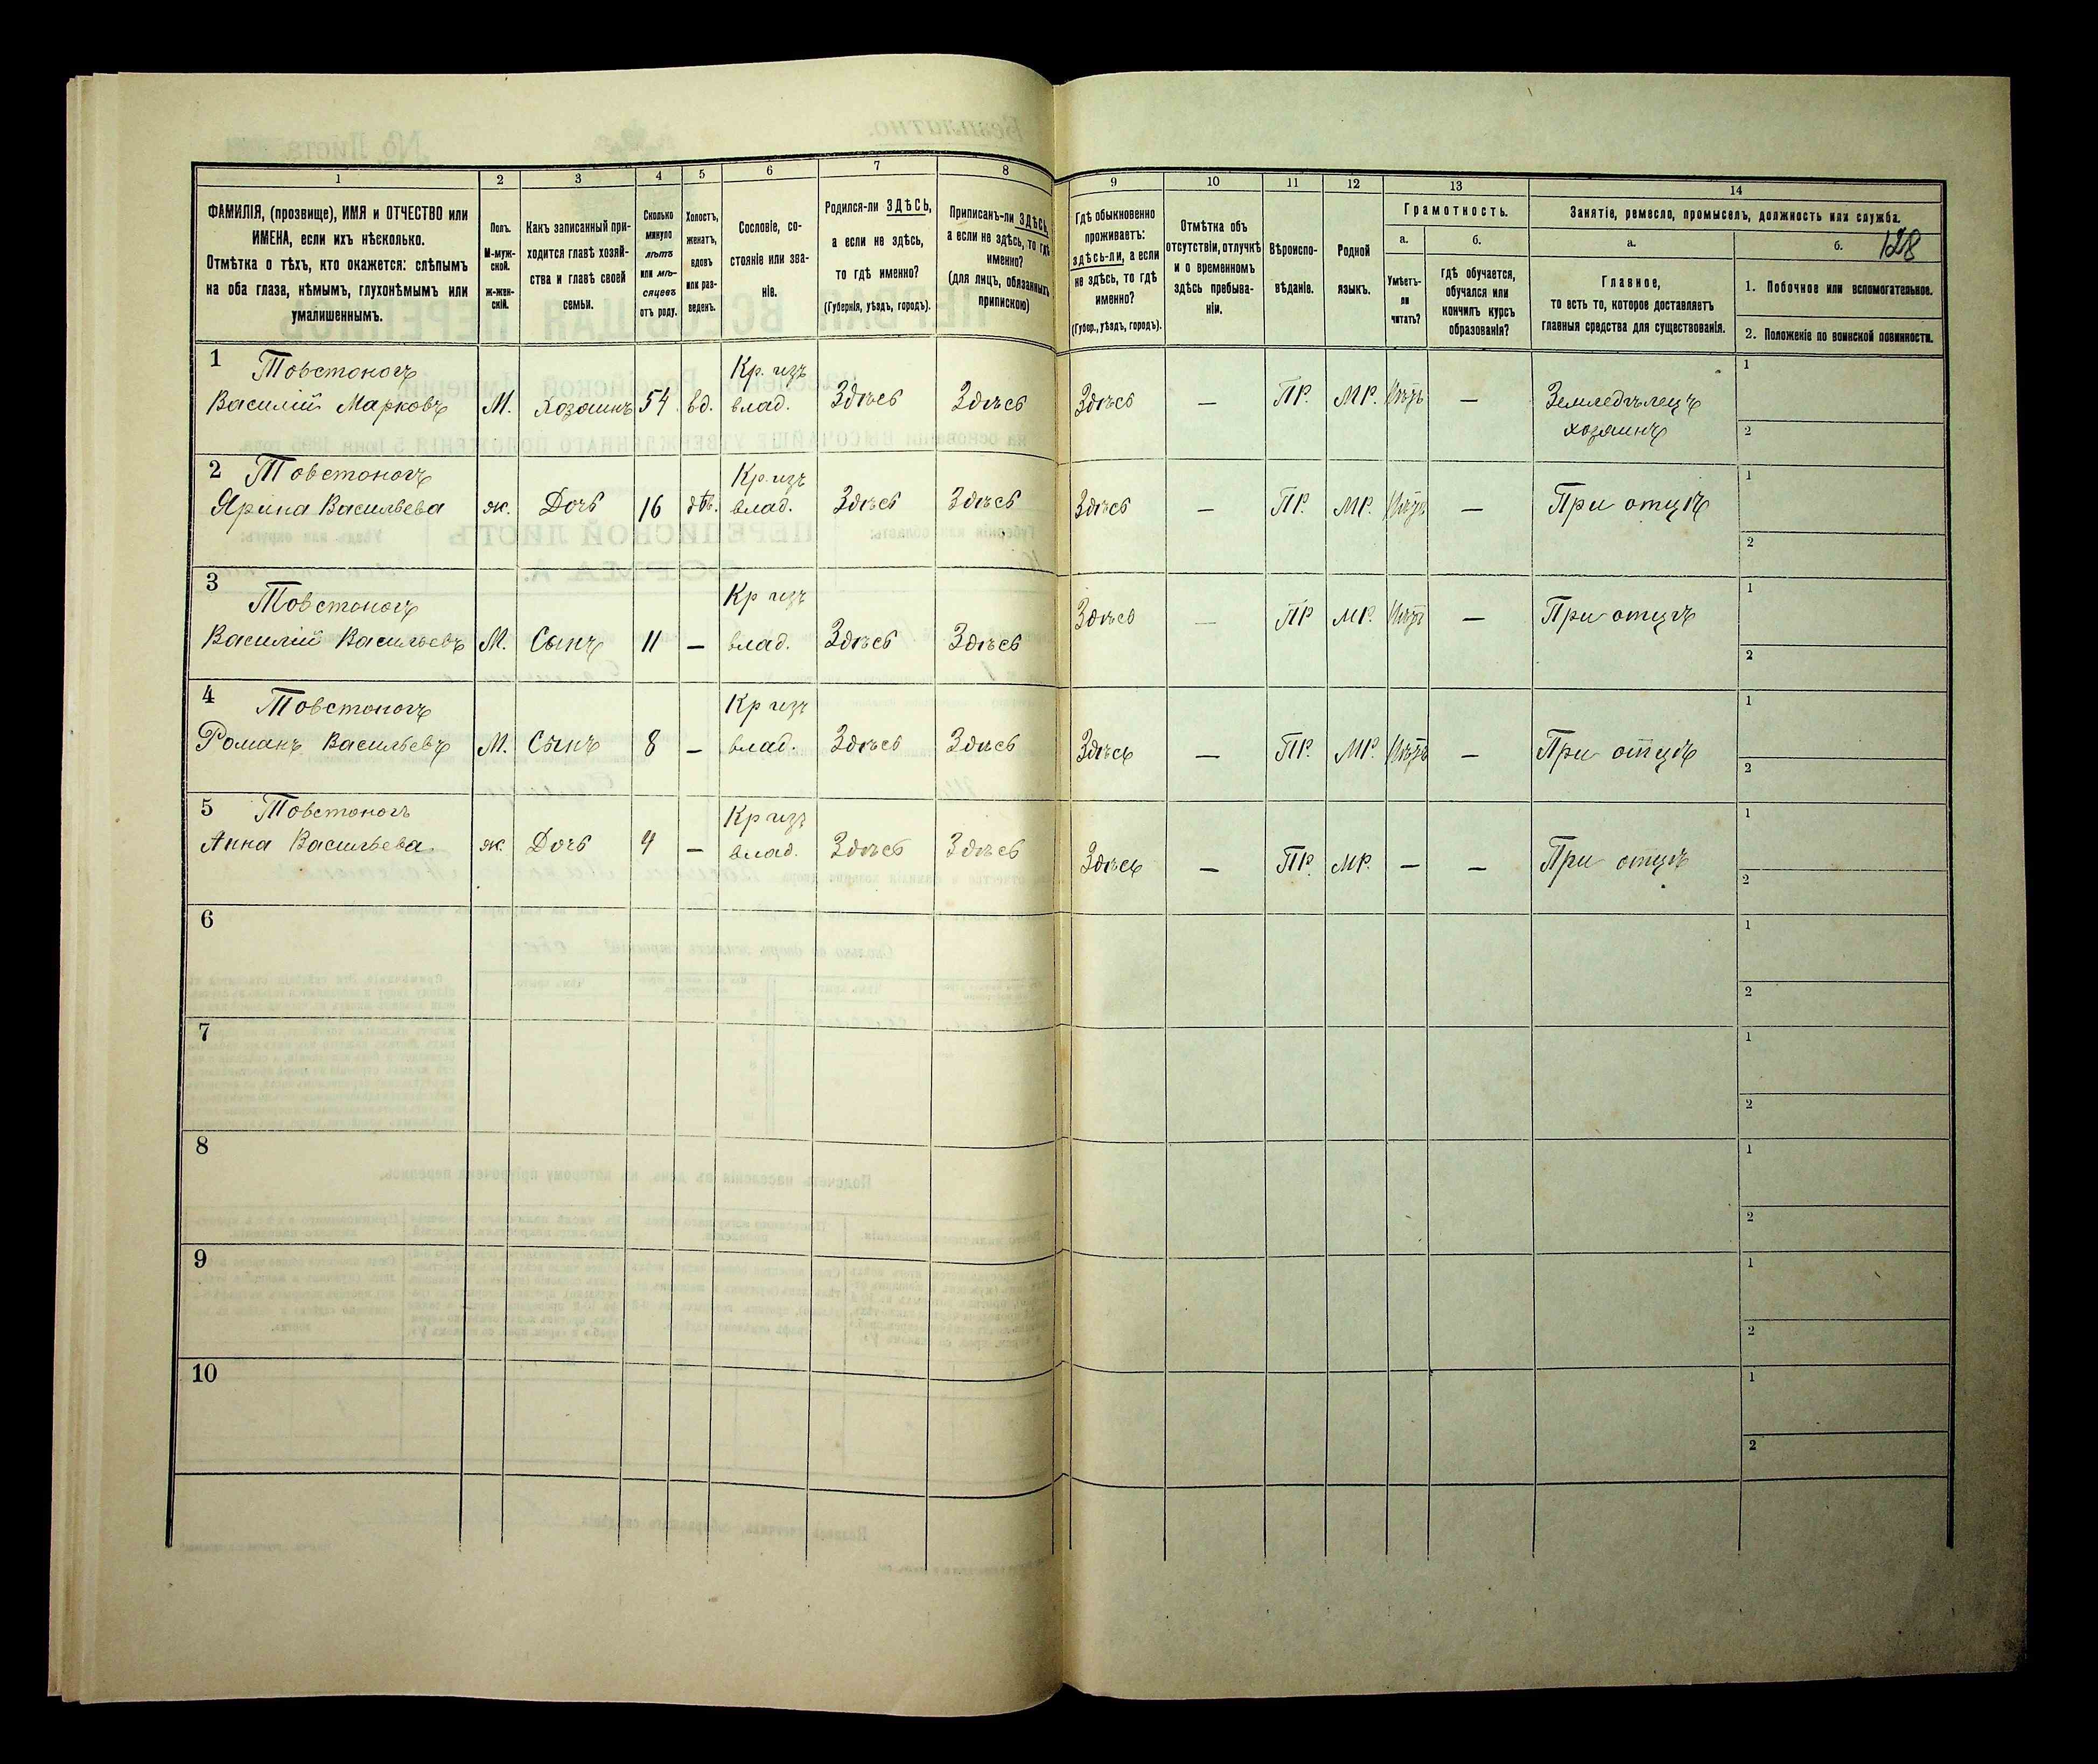 1 2 3 4 5 6 7 8 9 10 11 12 13 14
ФАМИЛІЯ, (прозвище), ИМЯ и ОТЧЕСТВО или
ИМЕНА, если ихъ нѣсколько.
Отмѣтка о тѣхъ, кто окажется: слѣпымъ
на оба глаза, нѣмымъ, глухонѣмымъ или
умалишеннымъ.
Полъ.
М-муж-
ской.
ж-жен-
скій.
Какъ записанный при-
ходится главѣ хозяй-
ства и главѣ своей
семьи.
Сколько
минуло
лѣтъ
или мѣ-
сяцевъ
отъ роду.
Холостъ,
женатъ,
вдовъ
или раз-
веденъ.
Сословіе, со-
стояніе или зва-
ніе.
Родился-ли ЗДѢСЬ,
а если не здѣсь,
то гдѣ именно?
(Губернія, уѣздъ, городъ).
Приписанъ-ли ЗДѢСЬ,
а если не здѣсь, то гдѣ
именно?
(для лицъ, обязанныхъ
припискою)
Гдѣ обыкновенно
проживаетъ:
здѣсь-ли, а если
не здѣсь, то гдѣ
именно?
(Губер., уѣздъ, городъ).
Отмѣтка объ
отсутствіи, отлучкѣ
и о временномъ
здѣсь пребыва-
ніи.
Вѣроиспо-
вѣданіе.
Родной
языкъ.
Грамотность.
а.
Умѣетъ-
ли
читать?
б.
гдѣ обучается,
обучался или
кончилъ курсъ
образованія?
Занятіе, ремесло, промыселъ, должность или служба.
а.
Главное,
то есть то, которое доставляетъ
главныя средства для существованія.
б.
128
1. Побочное или вспомогательное.
2. Положеніе по воинской повинности.
1 Товстоногъ Кр. изъ 1
Василій Марковъ М. Хозяинъ 54 вд. влад. Здѣсь Здѣсь Здѣсь — ПР. МР. Нѣтъ — Земледѣлецъ
хозяинъ 2
2 Товстоногъ Кр. изъ 1
Ярина Васильева ж. Дочь 16 дѣв. влад. Здѣсь Здѣсь Здѣсь — ПР. МР. Нѣтъ — При отцѣ
2
3 Товстоногъ Кр изъ 1
Василій Васильевъ М. Сынъ 11 — влад. Здѣсь Здѣсь Здѣсь — ПР МР. Нѣтъ — При отцѣ
2
4 Товстоногъ Кр изъ 1
Романъ Васильевъ М. Сынъ 8 — влад. Здѣсь Здѣсь Здѣсь — ПР. МР. Нѣтъ — При отцѣ
2
5 Товстоногъ Кр изъ 1
Анна Васильева. ж. Дочь 4 — влад. Здѣсь Здѣсь Здѣсь — ПР. МР. — — При отцѣ
2
6 1
2
7 1
2
8 1
2
9 1
2
10 1
2